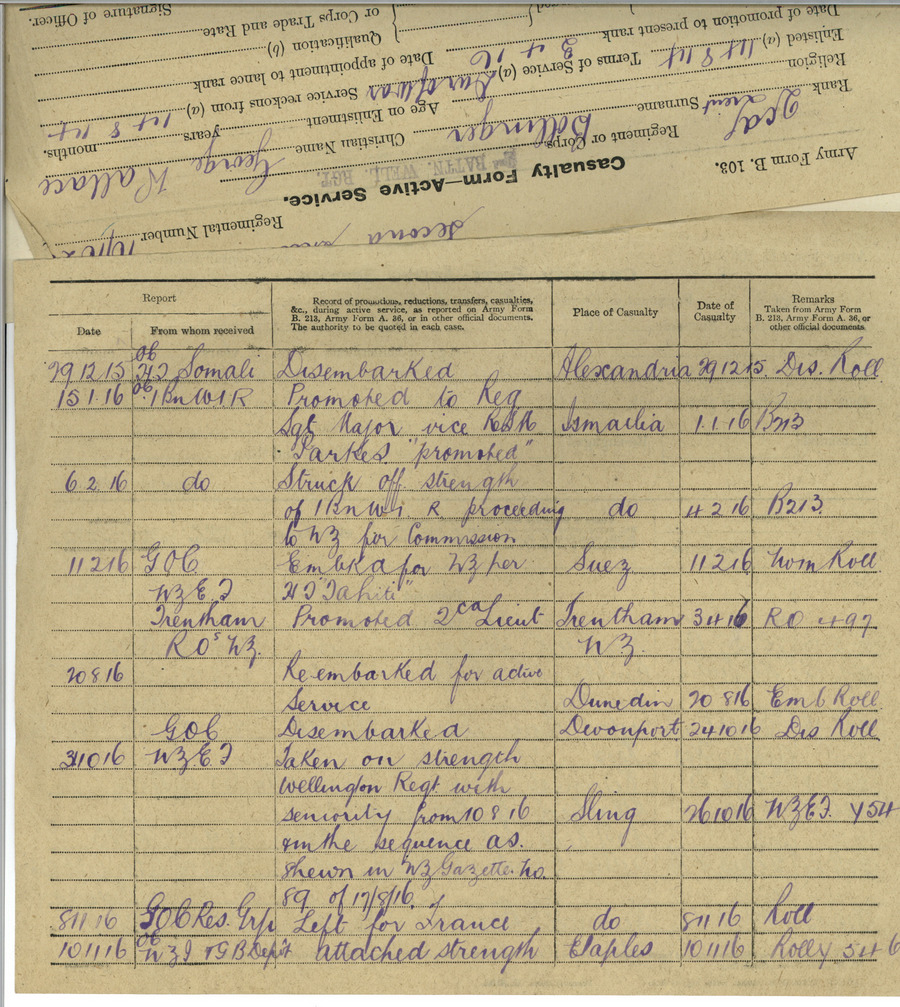 Army Form B. 103.
Casualty Form—Active Service.
Regimental Number
second
BATTN. WELL. RGT.
Regiment or Corps
Rank Lieut Surname Bollinger Christian Name George Wallace
Religion Age on Enlistment years months.
Enlisted (a) 14 8 14 Terms of Service (a) Dur of War Service reckons from (a) 14 8 14
Date of promotion to present rank 3 4 16 Date of appointment to lance rank
Qualification (b)
or Corps Trade and Rate
Signature of Officer.
Report
Date
From whom received
Record of promotions, reductions, transfers, casualties, &c., during active service, as reported on Army Form B. 213, Army Form A. 36, or in other official documents. The authority to be quoted in each case.
Place of Casualty
Date of Casualty
Remarks
Taken from Army Form B. 213, Army Form A. 36, or other official documents
OC
29 12 15 HT Somali Disembarked Alexandria 29 12 15 Dis. Roll
15 1 16 OC 1 Bn W I R Promoted to Reg
Sgt Major vice RSM Ismailia 1 1 16 B213
Parkes "promoted"
6 2 16 do Struck off strength
of 1 Bn W. I. R. proceeding do 4 2 16 B213
to NZ for Commission
11 2 16 GOC Embkd for NZ per Suez 11 2 16 Nom Roll
NZEF HT "Tahiti"
Trentham Promoted 2nd Lieut Trentham 3 4 16 RO 497
ROs NZ. NZ.
20 8 16 Re-embarked for active
Service Dunedin 20 8 16 Emb Roll
GOC Disembarked Devonport 24 10 16 Dis Roll
31 10 16 NZEF Taken on strength
Wellington Regt with
seniority from 10 8 16 Sling 26 10 16 NZEF. Y54
in the sequence as
shewn in NZ Gazette No
89 of 17/8/16.
8 11 16 GOC Res. Grp Left for France do 8 11 16 Roll
OC
10 11 16 NZI & GB Depot attached strength Etaples 10 11 16 Roll Y 546